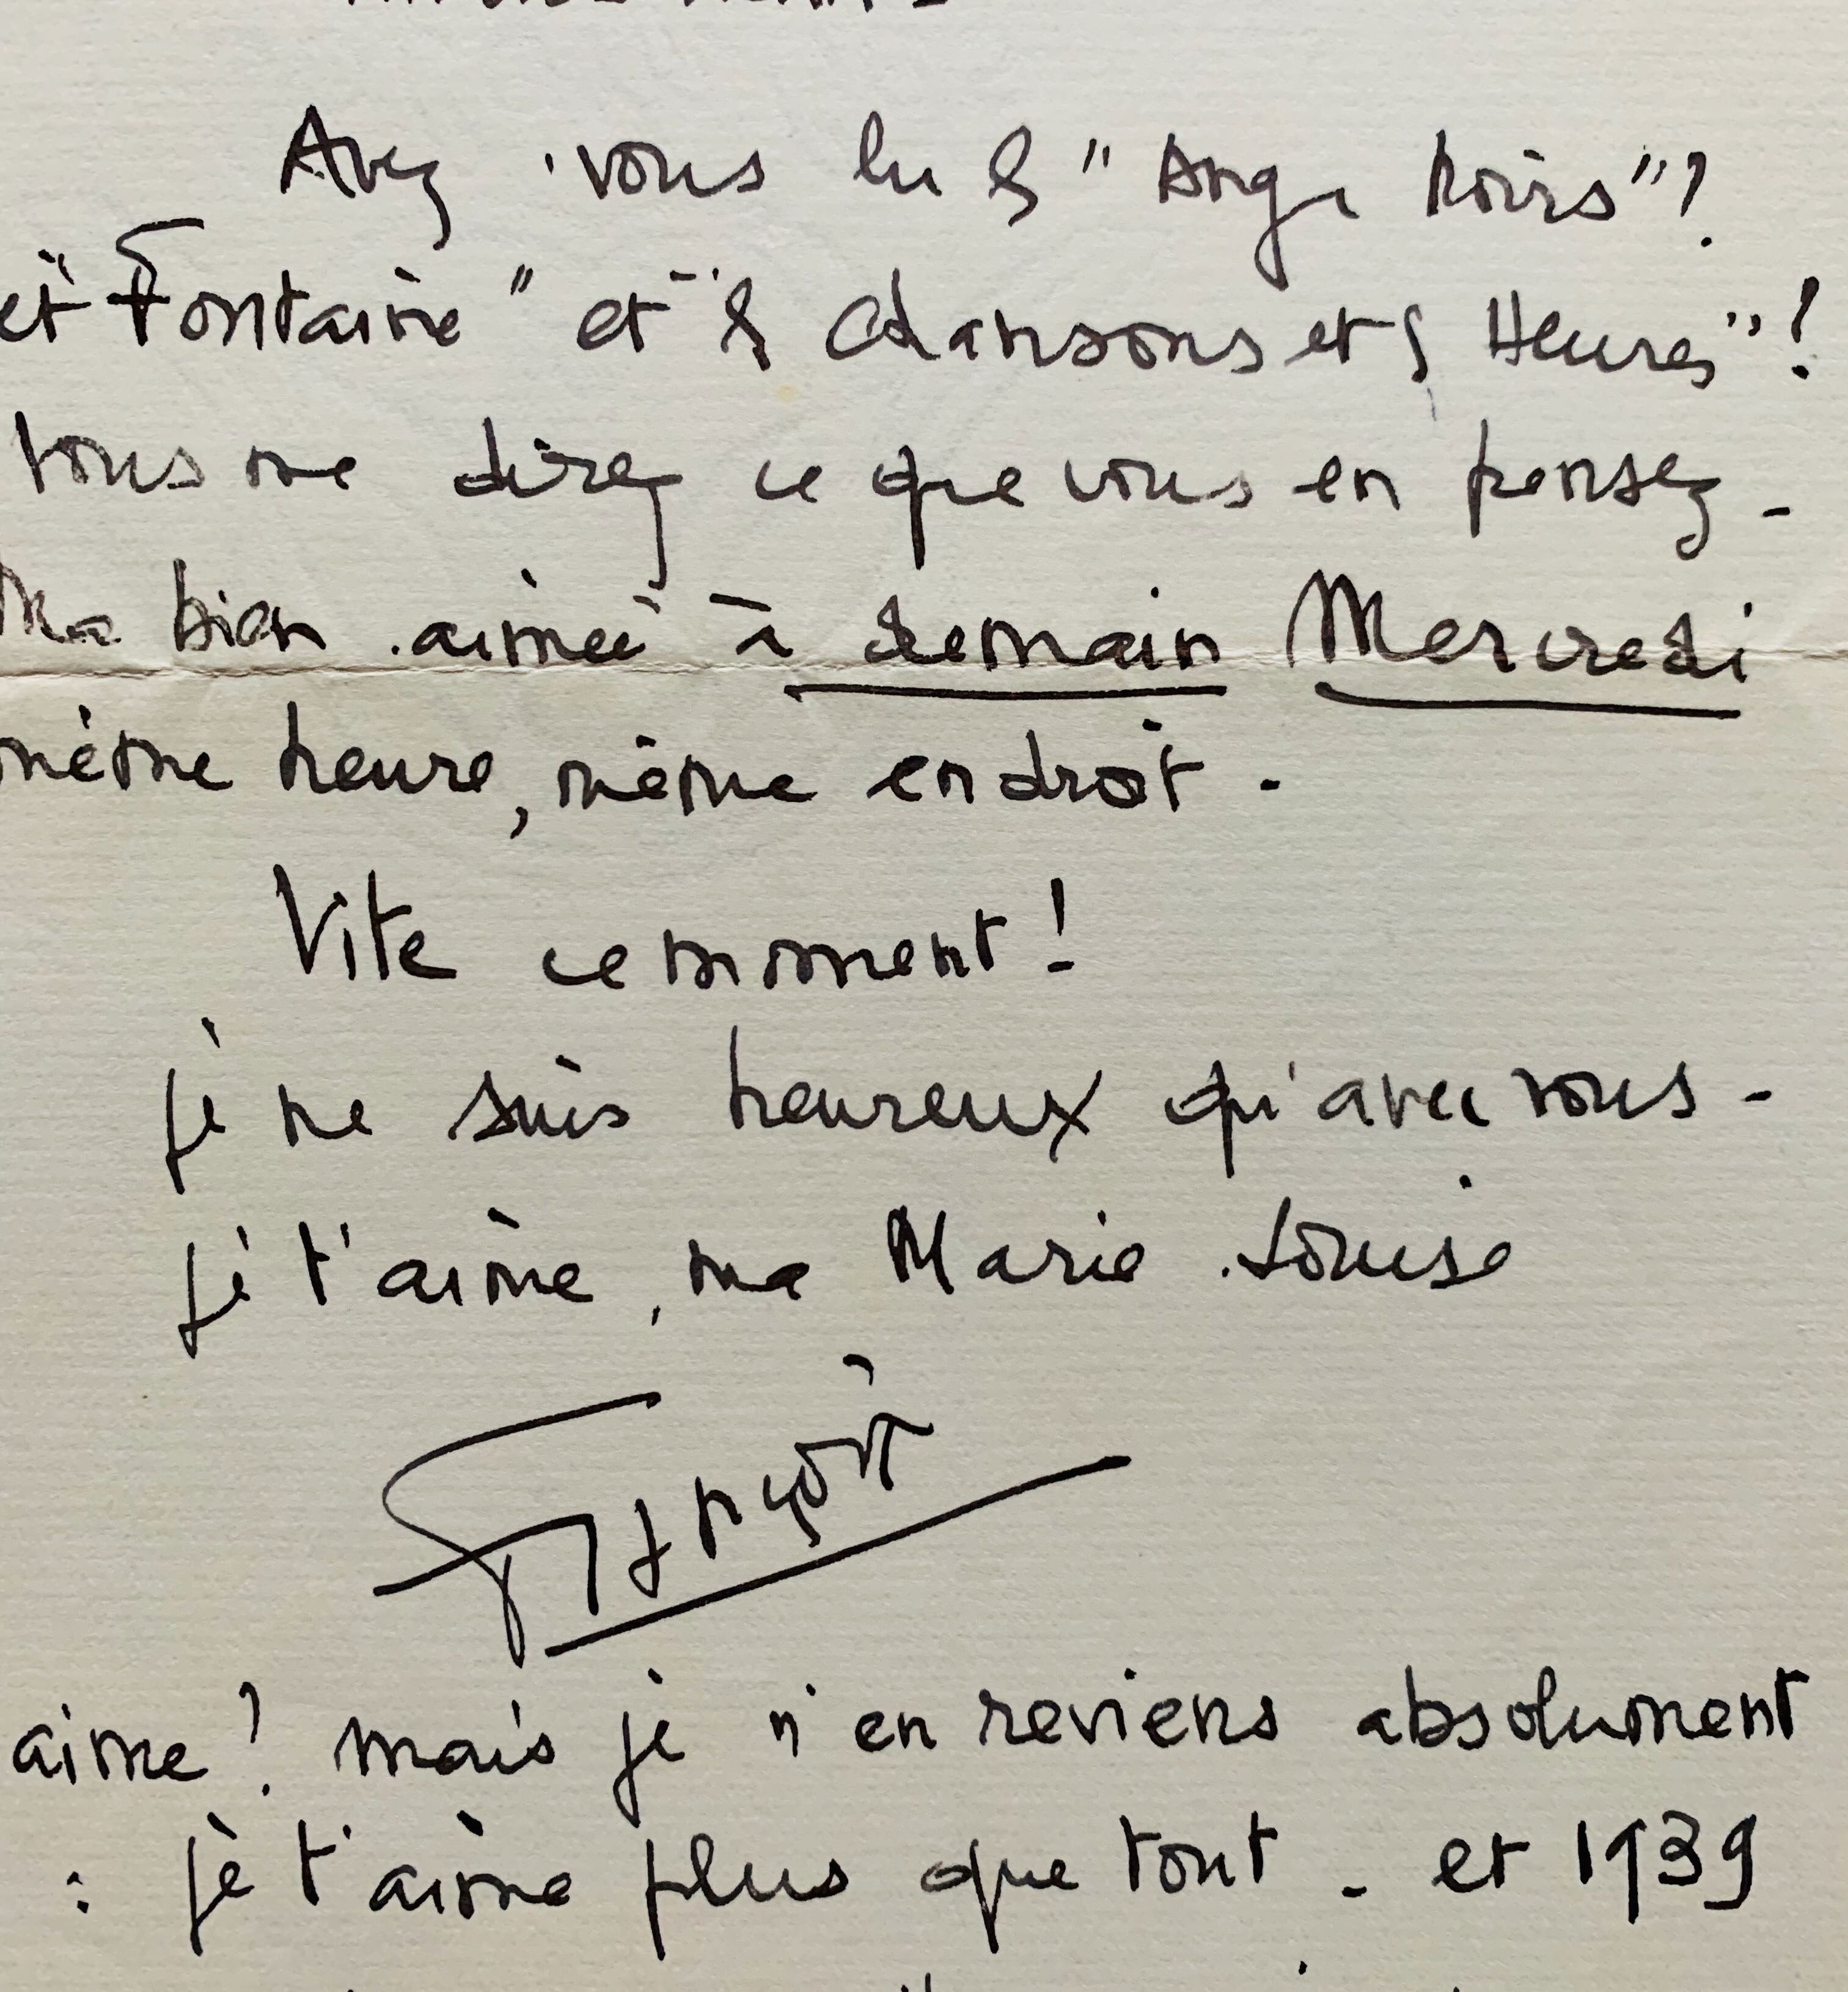 Avez-vous lu les "Anges Noirs"?
et "Fontaine" et "les Chansons et les Heures"!
Vous me direz ce que vous en pensez -
Ma bien-aimée à demain Mercredi
même heure, même endroit.
Vite ce moment!
je ne suis heureux qu'avec vous -
je t'aime, ma Marie-Louise
François
aime? mais je n'en reviens absolument
: je t'aime plus que tout - et 1939